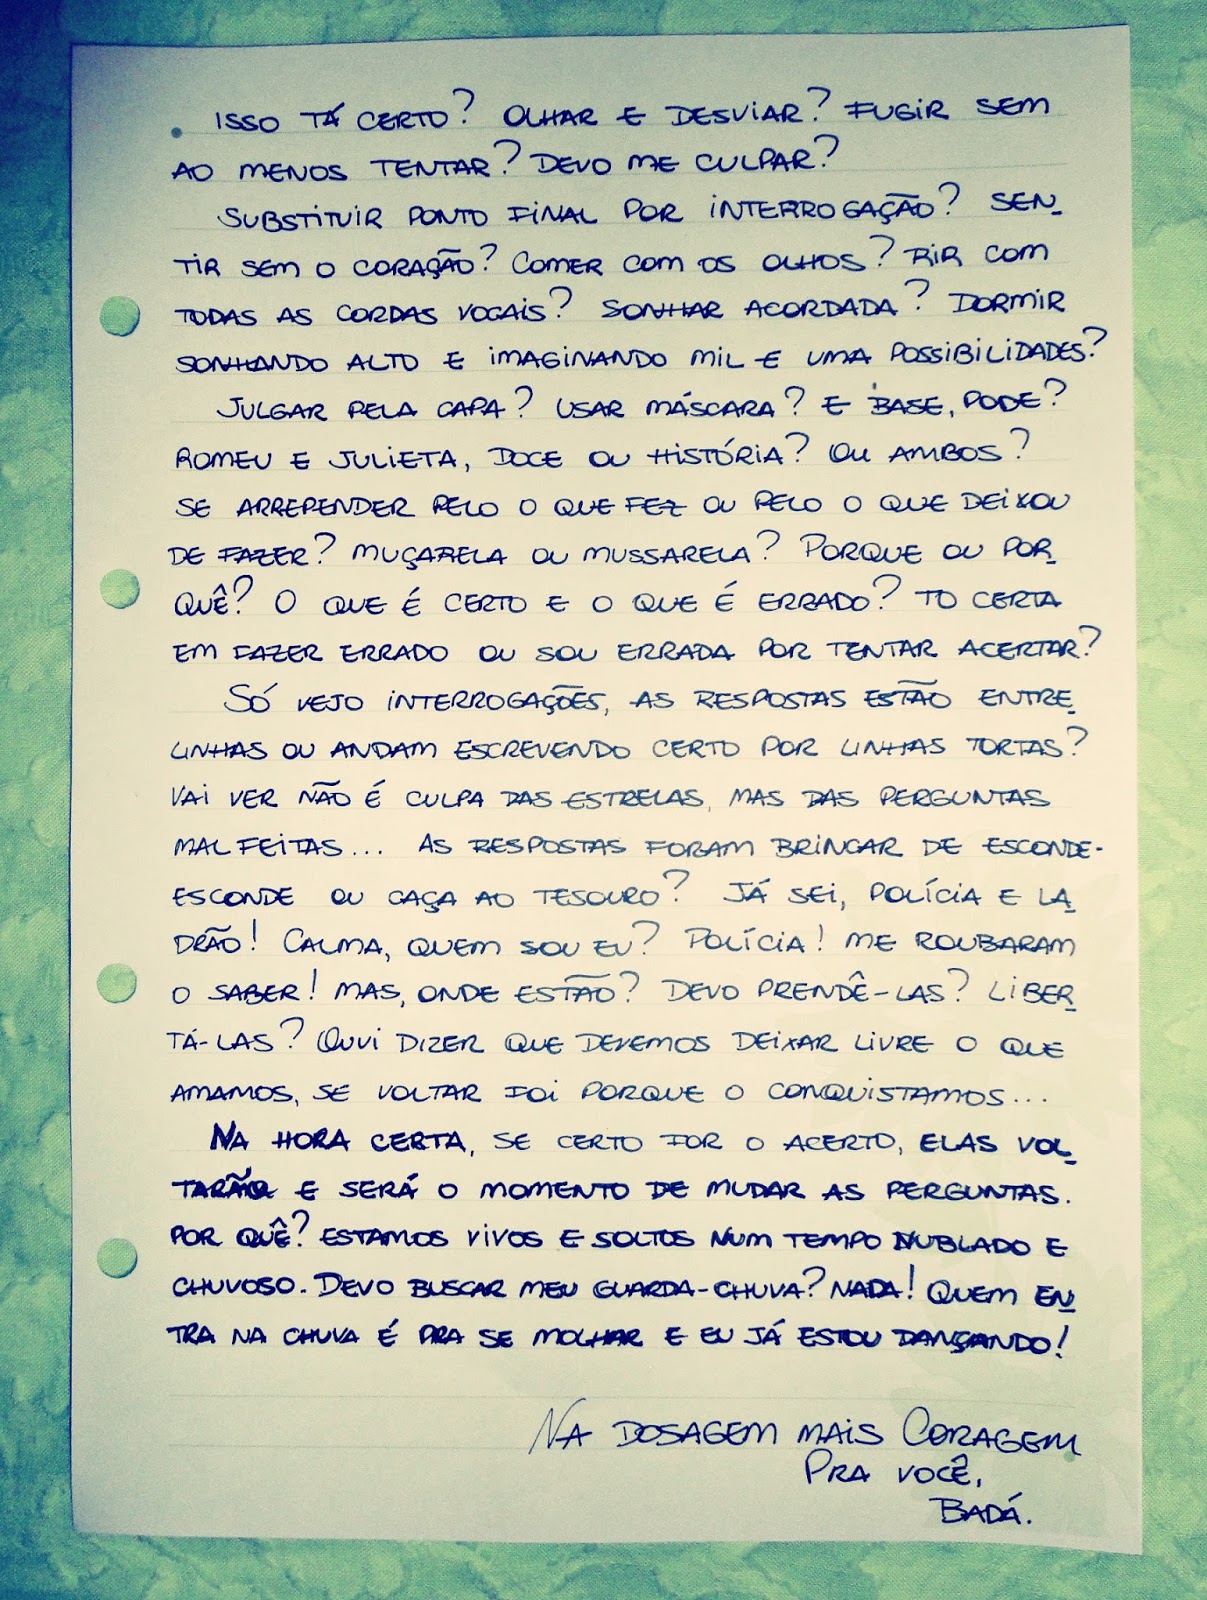 . ISSO TÁ CERTO? OLHAR E DESVIAR? FUGIR SEM
AO MENOS TENTAR? DEVO ME CULPAR?
SUBSTITUIR PONTO FINAL POR INTERROGAÇÃO? SEN-
TIR SEM O CORAÇÃO? COMER COM OS OLHOS? RIR COM
TODAS AS CORDAS VOCAIS? SONHAR ACORDADA? DORMIR
SONHANDO ALTO E IMAGINANDO MIL E UMA POSSIBILIDADES?
JULGAR PELA CAPA? USAR MÁSCARA? E BASE, PODE?
ROMEU E JULIETA, DOCE OU HISTÓRIA? OU AMBOS?
SE ARREPENDER PELO O QUE FEZ OU PELO O QUE DEIXOU
DE FAZER? MUÇARELA OU MUSSARELA? PORQUE OU POR
QUÊ? O QUE É CERTO E O QUE É ERRADO? TO CERTA
EM FAZER ERRADO OU SOU ERRADA POR TENTAR ACERTAR?
SÓ VEJO INTERROGAÇÕES, AS RESPOSTAS ESTÃO ENTRE
LINHAS OU ANDAM ESCREVENDO CERTO POR LINHAS TORTAS?
VAI VER NÃO É CULPA DAS ESTRELAS, MAS DAS PERGUNTAS
MAL FEITAS... AS RESPOSTAS FORAM BRINCAR DE ESCONDE-
ESCONDE OU CAÇA AO TESOURO? JÁ SEI, POLÍCIA E LA
DRÃO! CALMA, QUEM SOU EU? POLÍCIA! ME ROUBARAM
O SABER! MAS, ONDE ESTÃO? DEVO PRENDÊ-LAS? LIBER
TÁ-LAS? OUVI DIZER QUE DEVEMOS DEIXAR LIVRE O QUE
AMAMOS, SE VOLTAR FOI PORQUE O CONQUISTAMOS...
NA HORA CERTA, SE CERTO FOR O ACERTO, ELAS VOL
TARÃO E SERÁ O MOMENTO DE MUDAR AS PERGUNTAS.
POR QUÊ? ESTAMOS VIVOS E SOLTOS NUM TEMPO NUBLADO E
CHUVOSO. DEVO BUSCAR MEU GUARDA-CHUVA? NADA! QUEM EN
TRA NA CHUVA É PRA SE MOLHAR E EU JÁ ESTOU DANÇANDO!
NA DOSAGEM MAIS CORAGEM
PRA VOCÊ,
BADÁ.